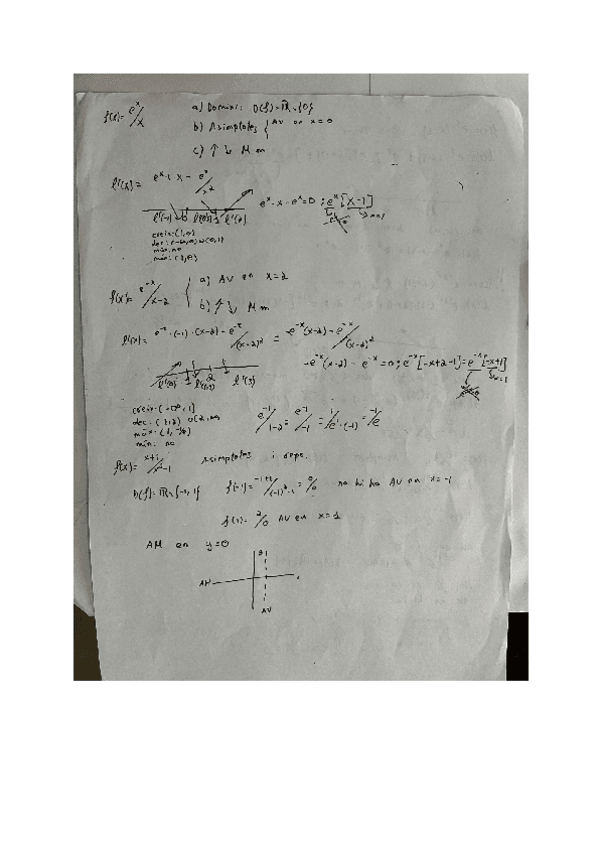 f(x) = e^x/x
a) Domini: D(f) = ℝ - {0}
b) Asimptotes { AV en x=0
c) ↑ ↓ M m
f'(x) = e^x · x - e^x / x^2
e^x · x - e^x = 0 ; e^x [x-1]
f'(-1) 0 1 f'(2)
creix: (1,∞)
dec: (-∞,0) ∪ (0,1)
màx: no
mín: (1,e)
f(x) = e^-x / x-2
a) AV en x=2
b) ↑ ↓ M m
f'(x) = e^-x · (-1) · (x-2) - e^-x / (x-2)^2 = -e^-x (x-2) - e^-x / (x-2)^2
-e^-x (x-2) - e^-x = 0 ; e^-x [-x+2-1] = e^-x [-x+1]
f'(0) 1 2 f'(3)
creix: (-∞, 1]
dec: (1,2) ∪ (2,∞)
màx: (1, -1/e)
mín: no
e^-1 / 1-2 = e^-1 / -1 = 1/e·(-1) = -1/e
f(x) = x+1 / x^2-1 asimptotes i repr.
D(f) = ℝ - {-1, 1} f(-1) = -1+1 / (-1)^2-1 = 0/0 no hi ha AV en x=-1
f(1) = 2/0 AV en x=1
AH en y=0
AH
AV